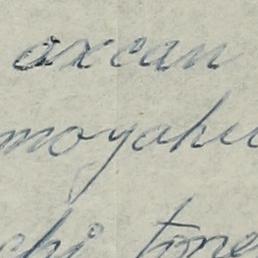 axcan
moyahu
chi tone